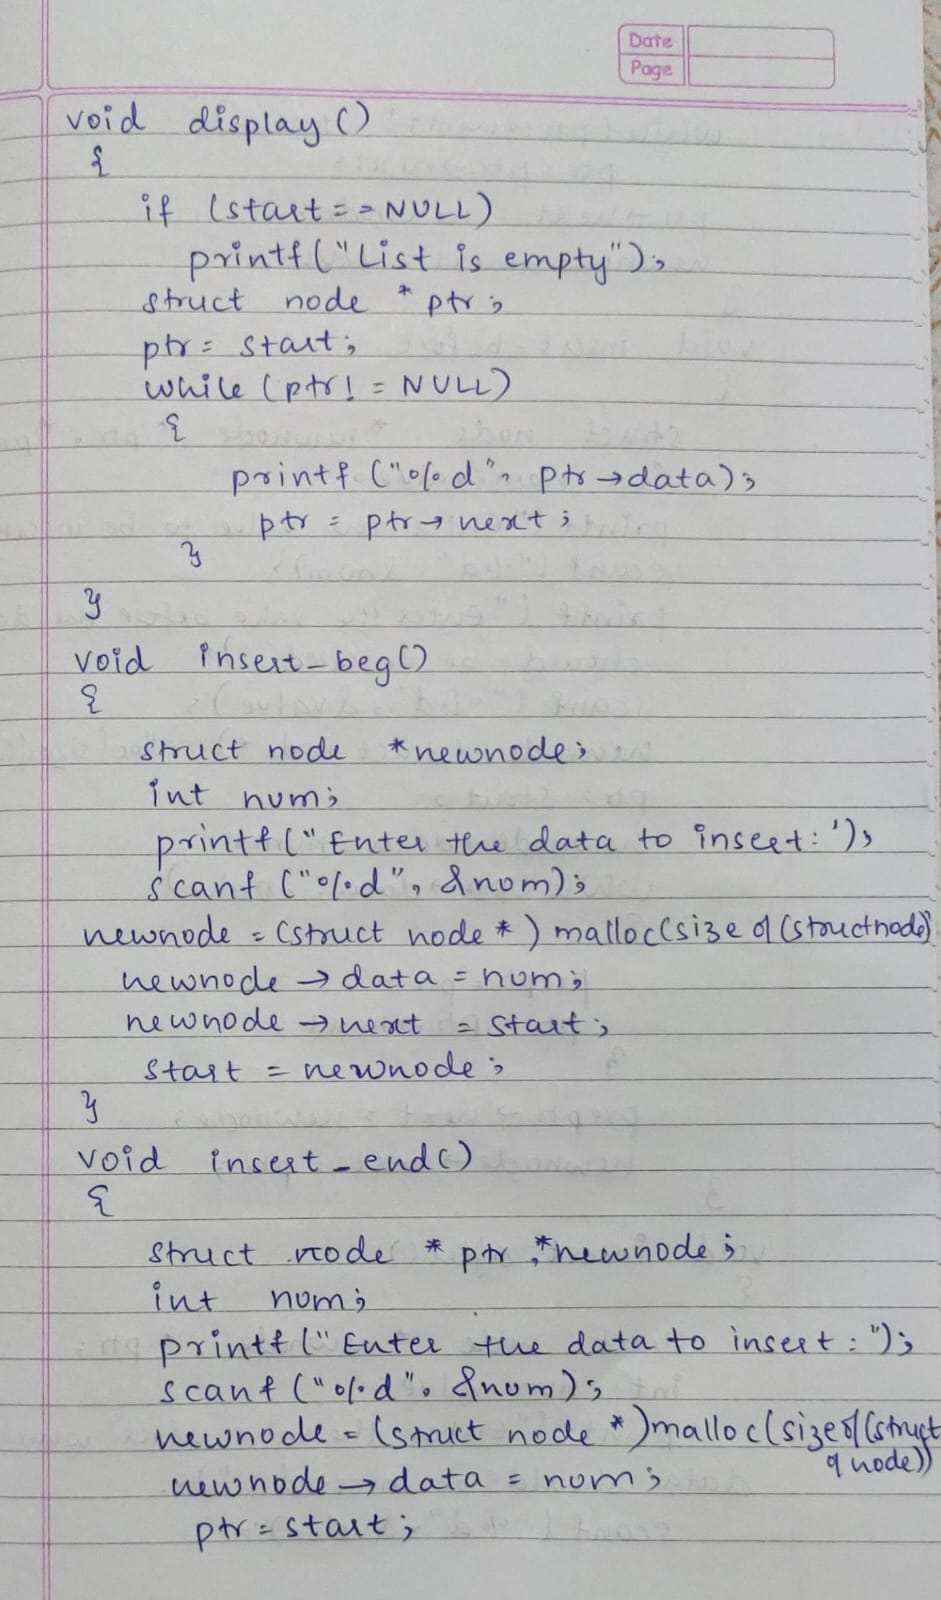 Date
Page
void display()
{
if (start==NULL)
printf("List is empty");
struct node *ptr;
ptr = start;
while (ptr!=NULL)
{
printf("%d", ptr→data);
ptr = ptr→next;
}
}
void insert_beg()
{
struct node *newnode;
int num;
printf("Enter the data to insert:');
scanf("%d", &num);
newnode = (struct node*) malloc(sizeof(structnode))
newnode→data = num;
newnode→next = start;
start = newnode;
}
void insert_end()
{
struct node *ptr,*newnode;
int num;
printf("Enter the data to insert:");
scanf("%d", &num);
newnode = (struct node *)malloc(sizeof(struct
node))
newnode→data = num;
ptr = start;